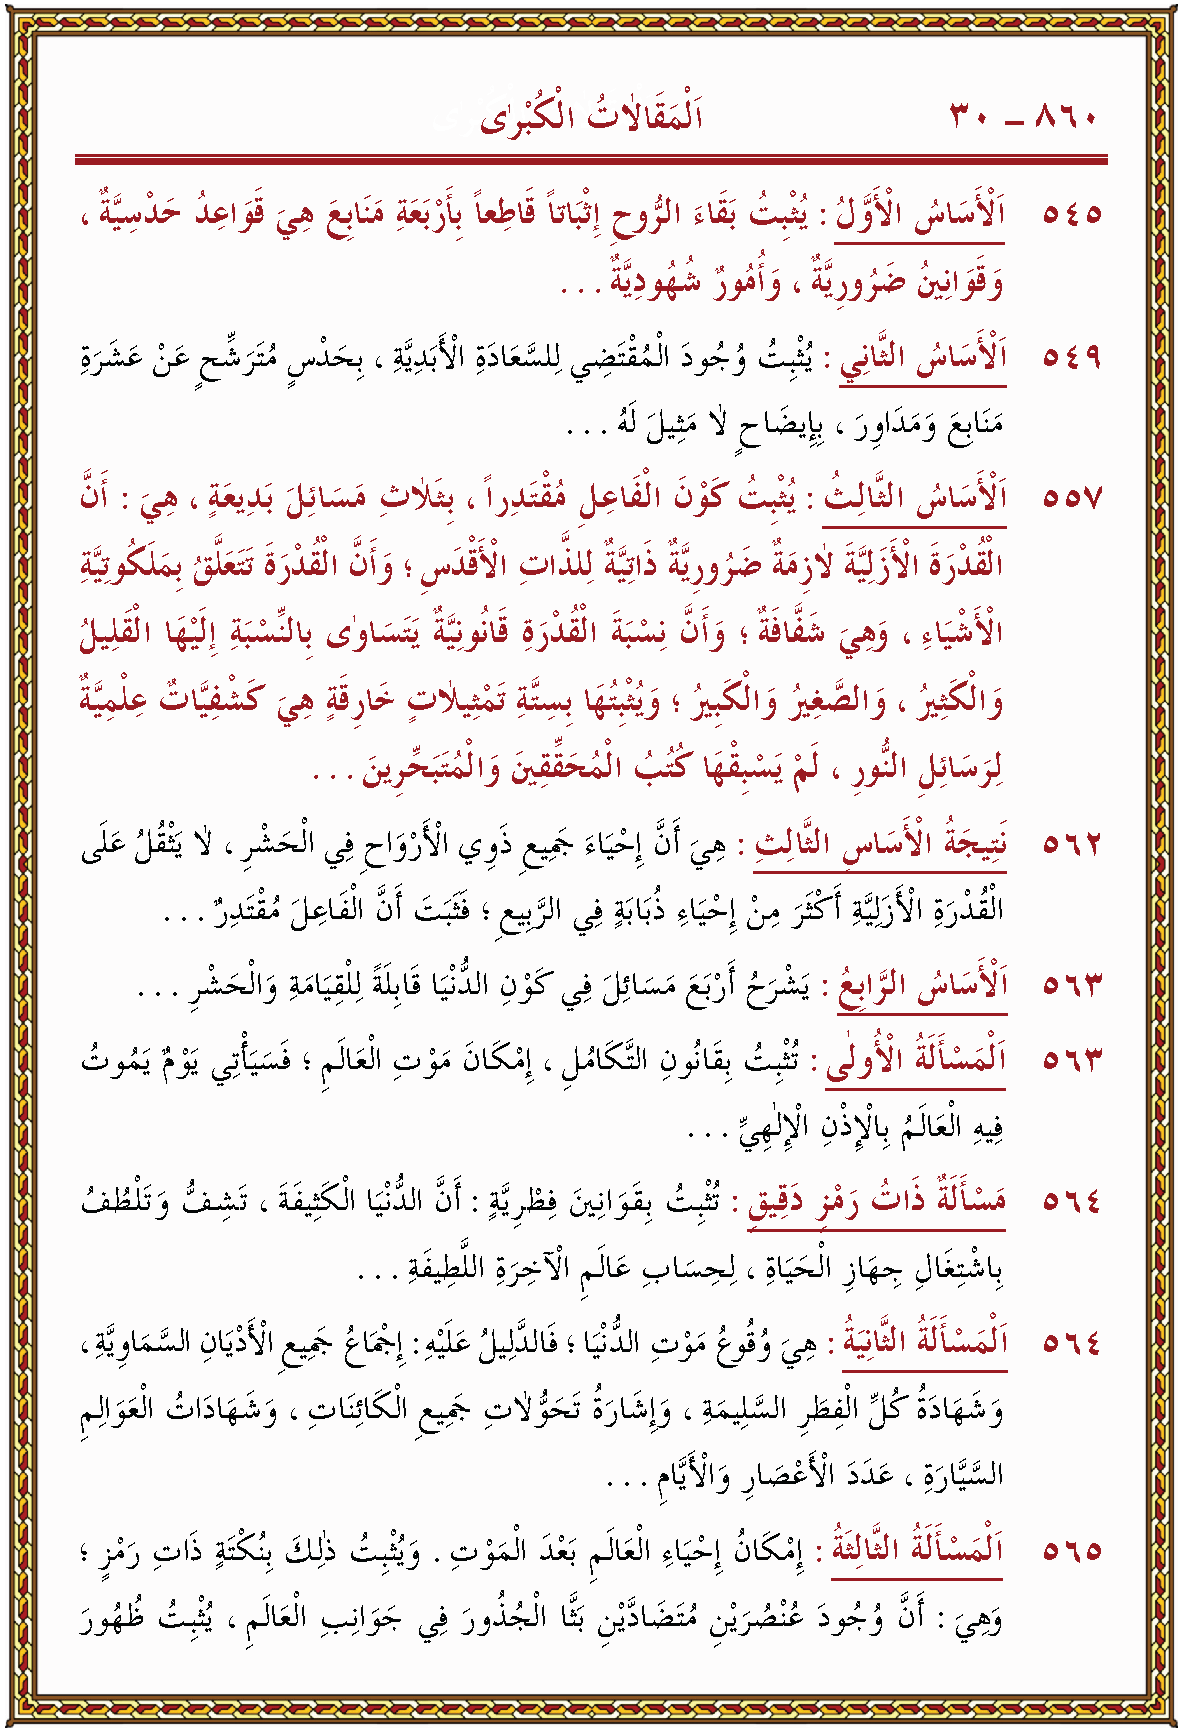 ٨٦٠ – ٣٠ اَلْمَقَالاٰتُ الْكُبْرٰى
٥٤٥ اَلْأَسَاسُ الْأَوَّلُ : يُثْبِتُ بَقَاءَ الرُّوحِ إِثْبَاتاً قَاطِعاً بِأَرْبَعَةِ مَنَابِعَ هِيَ قَوَاعِدُ حَدْسِيَّةٌ ،
وَقَوَانِينُ ضَرُورِيَّةٌ ، وَأُمُورٌ شُهُودِيَّةٌ . . .
٥٤٩ اَلْأَسَاسُ الثَّانِي : يُثْبِتُ وُجُودَ الْمُقْتَضِي لِلسَّعَادَةِ الْأَبَدِيَّةِ ، بِحَدْسٍ مُتَرَشِّحٍ عَنْ عَشَرَةِ
مَنَابِعَ وَمَدَاوِرَ ، بِإِيضَاحٍ لاٰ مَثِيلَ لَهُ . . .
٥٥٧ اَلْأَسَاسُ الثَّالِثُ : يُثْبِتُ كَوْنَ الْفَاعِلِ مُقْتَدِراً ، بِثَلاٰثِ مَسَائِلَ بَدِيعَةٍ ، هِيَ : أَنَّ
الْقُدْرَةَ الْأَزَلِيَّةَ لاٰزِمَةٌ ضَرُورِيَّةٌ ذَاتِيَّةٌ لِلذَّاتِ الْأَقْدَسِ ؛ وَأَنَّ الْقُدْرَةَ تَتَعَلَّقُ بِمَلَكُوتِيَّةِ
الْأَشْيَاءِ ، وَهِيَ شَفَّافَةٌ ؛ وَأَنَّ نِسْبَةَ الْقُدْرَةِ قَانُونِيَّةٌ يَتَسَاوٰى بِالنِّسْبَةِ إِلَيْهَا الْقَلِيلُ
وَالْكَثِيرُ ، وَالصَّغِيرُ وَالْكَبِيرُ ؛ وَيُثْبِتُهَا بِسِتَّةِ تَمْثِيلاٰتٍ خَارِقَةٍ هِيَ كَشْفِيَّاتٌ عِلْمِيَّةٌ
لِرَسَائِلِ النُّورِ ، لَمْ يَسْبِقْهَا كُتُبُ الْمُحَقِّقِينَ وَالْمُتَبَحِّرِينَ . . .
٥٦٢ نَتِيجَةُ الْأَسَاسِ الثَّالِثِ : هِيَ أَنَّ إِحْيَاءَ جَمِيعِ ذَوِي الْأَرْوَاحِ فِي الْحَشْرِ ، لاٰ يَثْقُلُ عَلَى
الْقُدْرَةِ الْأَزَلِيَّةِ أَكْثَرَ مِنْ إِحْيَاءِ ذُبَابَةٍ فِي الرَّبِيعِ ؛ فَثَبَتَ أَنَّ الْفَاعِلَ مُقْتَدِرٌ . . .
٥٦٣ اَلْأَسَاسُ الرَّابِعُ : يَشْرَحُ أَرْبَعَ مَسَائِلَ فِي كَوْنِ الدُّنْيَا قَابِلَةً لِلْقِيَامَةِ وَالْحَشْرِ . . .
٥٦٣ اَلْمَسْأَلَةُ الْأُولٰى : تُثْبِتُ بِقَانُونِ التَّكَامُلِ ، إِمْكَانَ مَوْتِ الْعَالَمِ ؛ فَسَيَأْتِي يَوْمٌ يَمُوتُ
فِيهِ الْعَالَمُ بِالْإِذْنِ الْإِلٰهِيِّ . . .
٥٦٤ مَسْأَلَةٌ ذَاتُ رَمْزٍ دَقِيقٍ : تُثْبِتُ بِقَوَانِينَ فِطْرِيَّةٍ : أَنَّ الدُّنْيَا الْكَثِيفَةَ ، تَشِفُّ وَتَلْطُفُ
بِاشْتِغَالِ جِهَازِ الْحَيَاةِ ، لِحِسَابِ عَالَمِ الْآخِرَةِ اللَّطِيفَةِ . . .
٥٦٤ اَلْمَسْأَلَةُ الثَّانِيَةُ : هِيَ وُقُوعُ مَوْتِ الدُّنْيَا ؛ فَالدَّلِيلُ عَلَيْهِ : إِجْمَاعُ جَمِيعِ الْأَدْيَانِ السَّمَاوِيَّةِ ،
وَشَهَادَةُ كُلِّ الْفِطَرِ السَّلِيمَةِ ، وَإِشَارَةُ تَحَوُّلاٰتِ جَمِيعِ الْكَائِنَاتِ ، وَشَهَادَاتُ الْعَوَالِمِ
السَّيَّارَةِ ، عَدَدَ الْأَعْصَارِ وَالْأَيَّامِ . . .
٥٦٥ اَلْمَسْأَلَةُ الثَّالِثَةُ : إِمْكَانُ إِحْيَاءِ الْعَالَمِ بَعْدَ الْمَوْتِ . وَيُثْبِتُ ذٰلِكَ بِنُكْتَةٍ ذَاتِ رَمْزٍ ؛
وَهِيَ : أَنَّ وُجُودَ عُنْصُرَيْنِ مُتَضَادَّيْنِ بَثَّا الْجُذُورَ فِي جَوَانِبِ الْعَالَمِ ، يُثْبِتُ ظُهُورَ